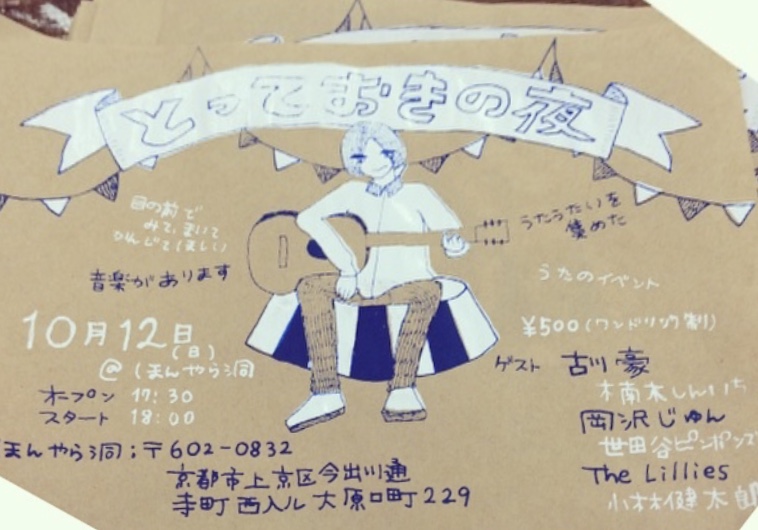 とっておきの夜
目の前で
みて、きいて
かんじてほしい
音楽があります
うたうたいを
集めた
うたのイベント
10月12日
(日)
@ほんやら洞
オープン 17:30
スタート 18:00
¥500(ワンドリンク制)
ゲスト 古川豪
楠木しんいち
岡沢じゅん
世田谷ピンポンズ
The Lillies
小林健太郎
ほんやら洞;〒602-0832
京都市上京区今出川通
寺町西入ル大原口町229